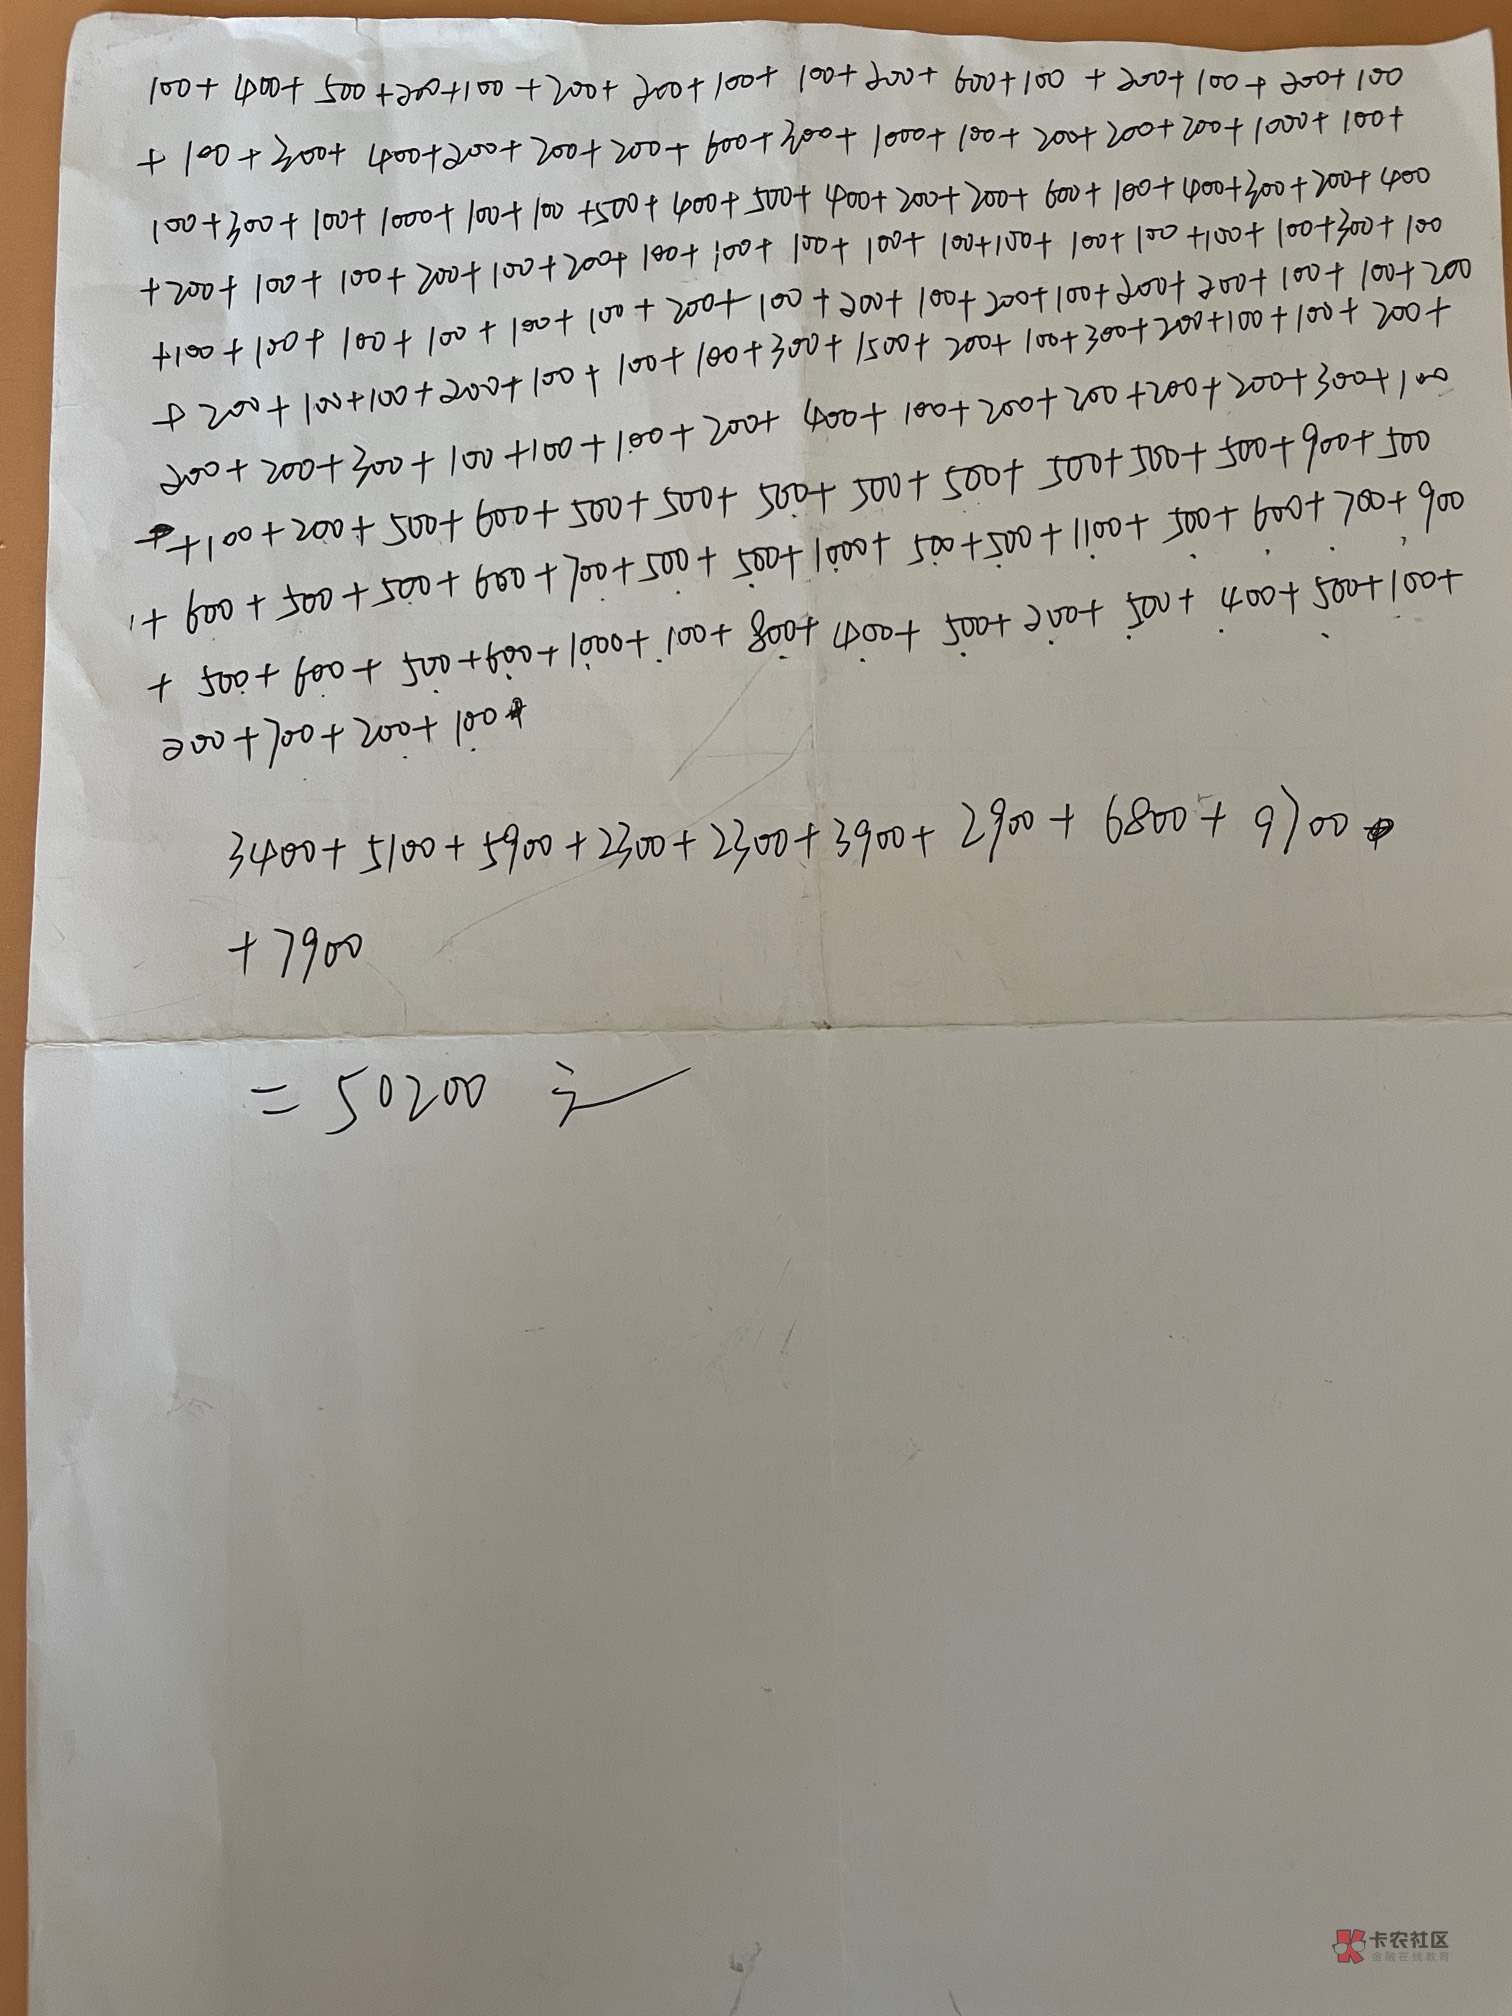 100+400+500+200+100+200+200+100+100+200+600+100+200+100+200+100
+100+300+400+200+200+200+600+300+1000+100+200+200+200+1000+100+
100+300+100+1000+100+100+500+400+500+400+200+200+600+100+400+300+200+400
+200+100+100+200+100+200+100+100+100+100+100+100+100+100+100+100+300+100
+100+100+100+100+100+100+200+100+200+100+200+100+200+200+100+100+200
+200+100+100+200+100+100+100+300+1500+200+100+300+200+100+100+200+
200+200+300+100+100+100+200+400+100+200+200+200+200+300+100
+100+200+500+600+500+500+500+500+500+500+500+500+900+500
+600+500+500+600+700+500+500+1000+500+500+1100+500+600+700+900
+500+600+500+600+1000+100+800+400+500+200+500+400+500+100+
200+700+200+100
3400+5100+5900+2300+2300+3900+2900+6800+9700
+7900
=50200元
卡农社区
金融在线教育